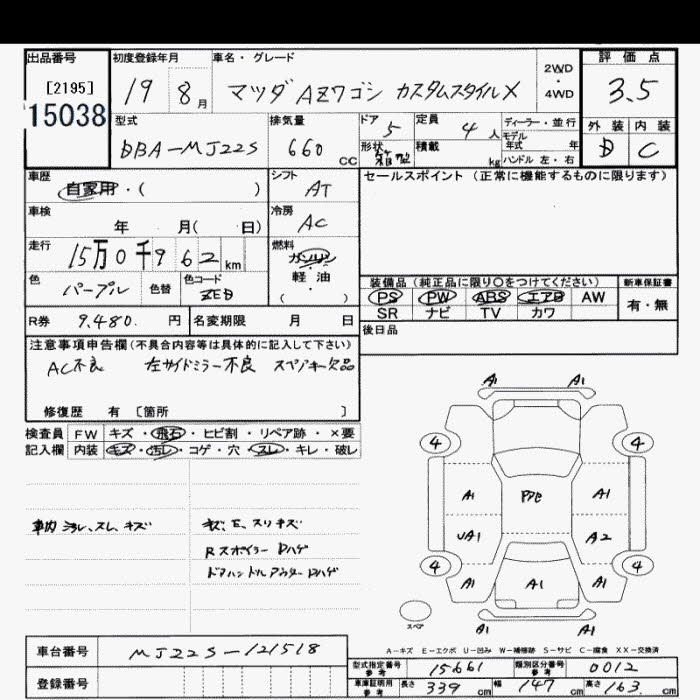 出品番号 初度登録年月 車名・グレード 評価点
[2195] 19 8月 マツダ AZワゴン カスタムスタイルX 2WD・4WD 3.5
15038 型式 排気量 ドア 5 定員 4人 ディーラー・並行 外装 内装
DBA-MJ22S 660cc 形状 箱型 積載 kg モデル年式 年 ハンドル 左・右 D C
車歴 自家用・( ) シフト AT セールスポイント(正常に機能するものに限ります)
車検 年 月( 日) 冷房 AC
走行 15万0千962km 燃料 ガソリン・軽油( )
色 パープル 色替 色コード ZED 装備品(純正品に限り○をつけてください) 新車保証書
PS PW ABS エアB AW 有・無
SR ナビ TV カワ
R券 9,480.円 名変期限 月 日 後日品
注意事項申告欄(不具合内容等は具体的に記入して下さい)
AC不良 左サイドミラー不良 スペアキー欠品
修復歴 有 〔箇所 〕
検査員 FW キズ・飛石・ヒビ割・リペア跡・×要
記入欄 内装 キズ・汚レ・コゲ・穴・スレ・キレ・破レ
車内 汚レ、スレ、キズ キズ、E、スリキズ
Rスポイラー Dハゲ
ドアハンドルアウター Dハゲ
A1 A1
4 4
A1 PPE A1
UA1 A2
4 4
A1 A1 A1
スペア A1 A1
A-キズ E-エクボ U-凹み W-補修跡 S-サビ C-腐食 XX-交換済
車台番号 MJ22S-121518
型式指定番号 参考 15661 類別区分番号 参考 0012
登録番号 車庫証明用 参考 長さ 339cm 幅 147cm 高さ 163cm